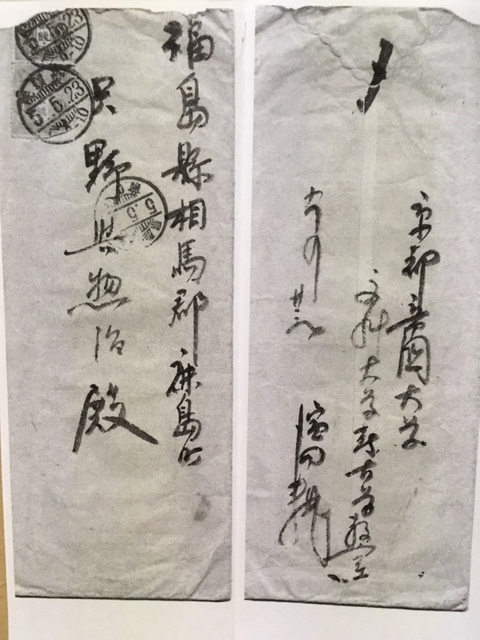 福島縣相馬郡鹿島町
只野與惣治殿
5.5.23
5.5.23
5.5.
京都帝國大學
文科大學考古學教室
濱田耕